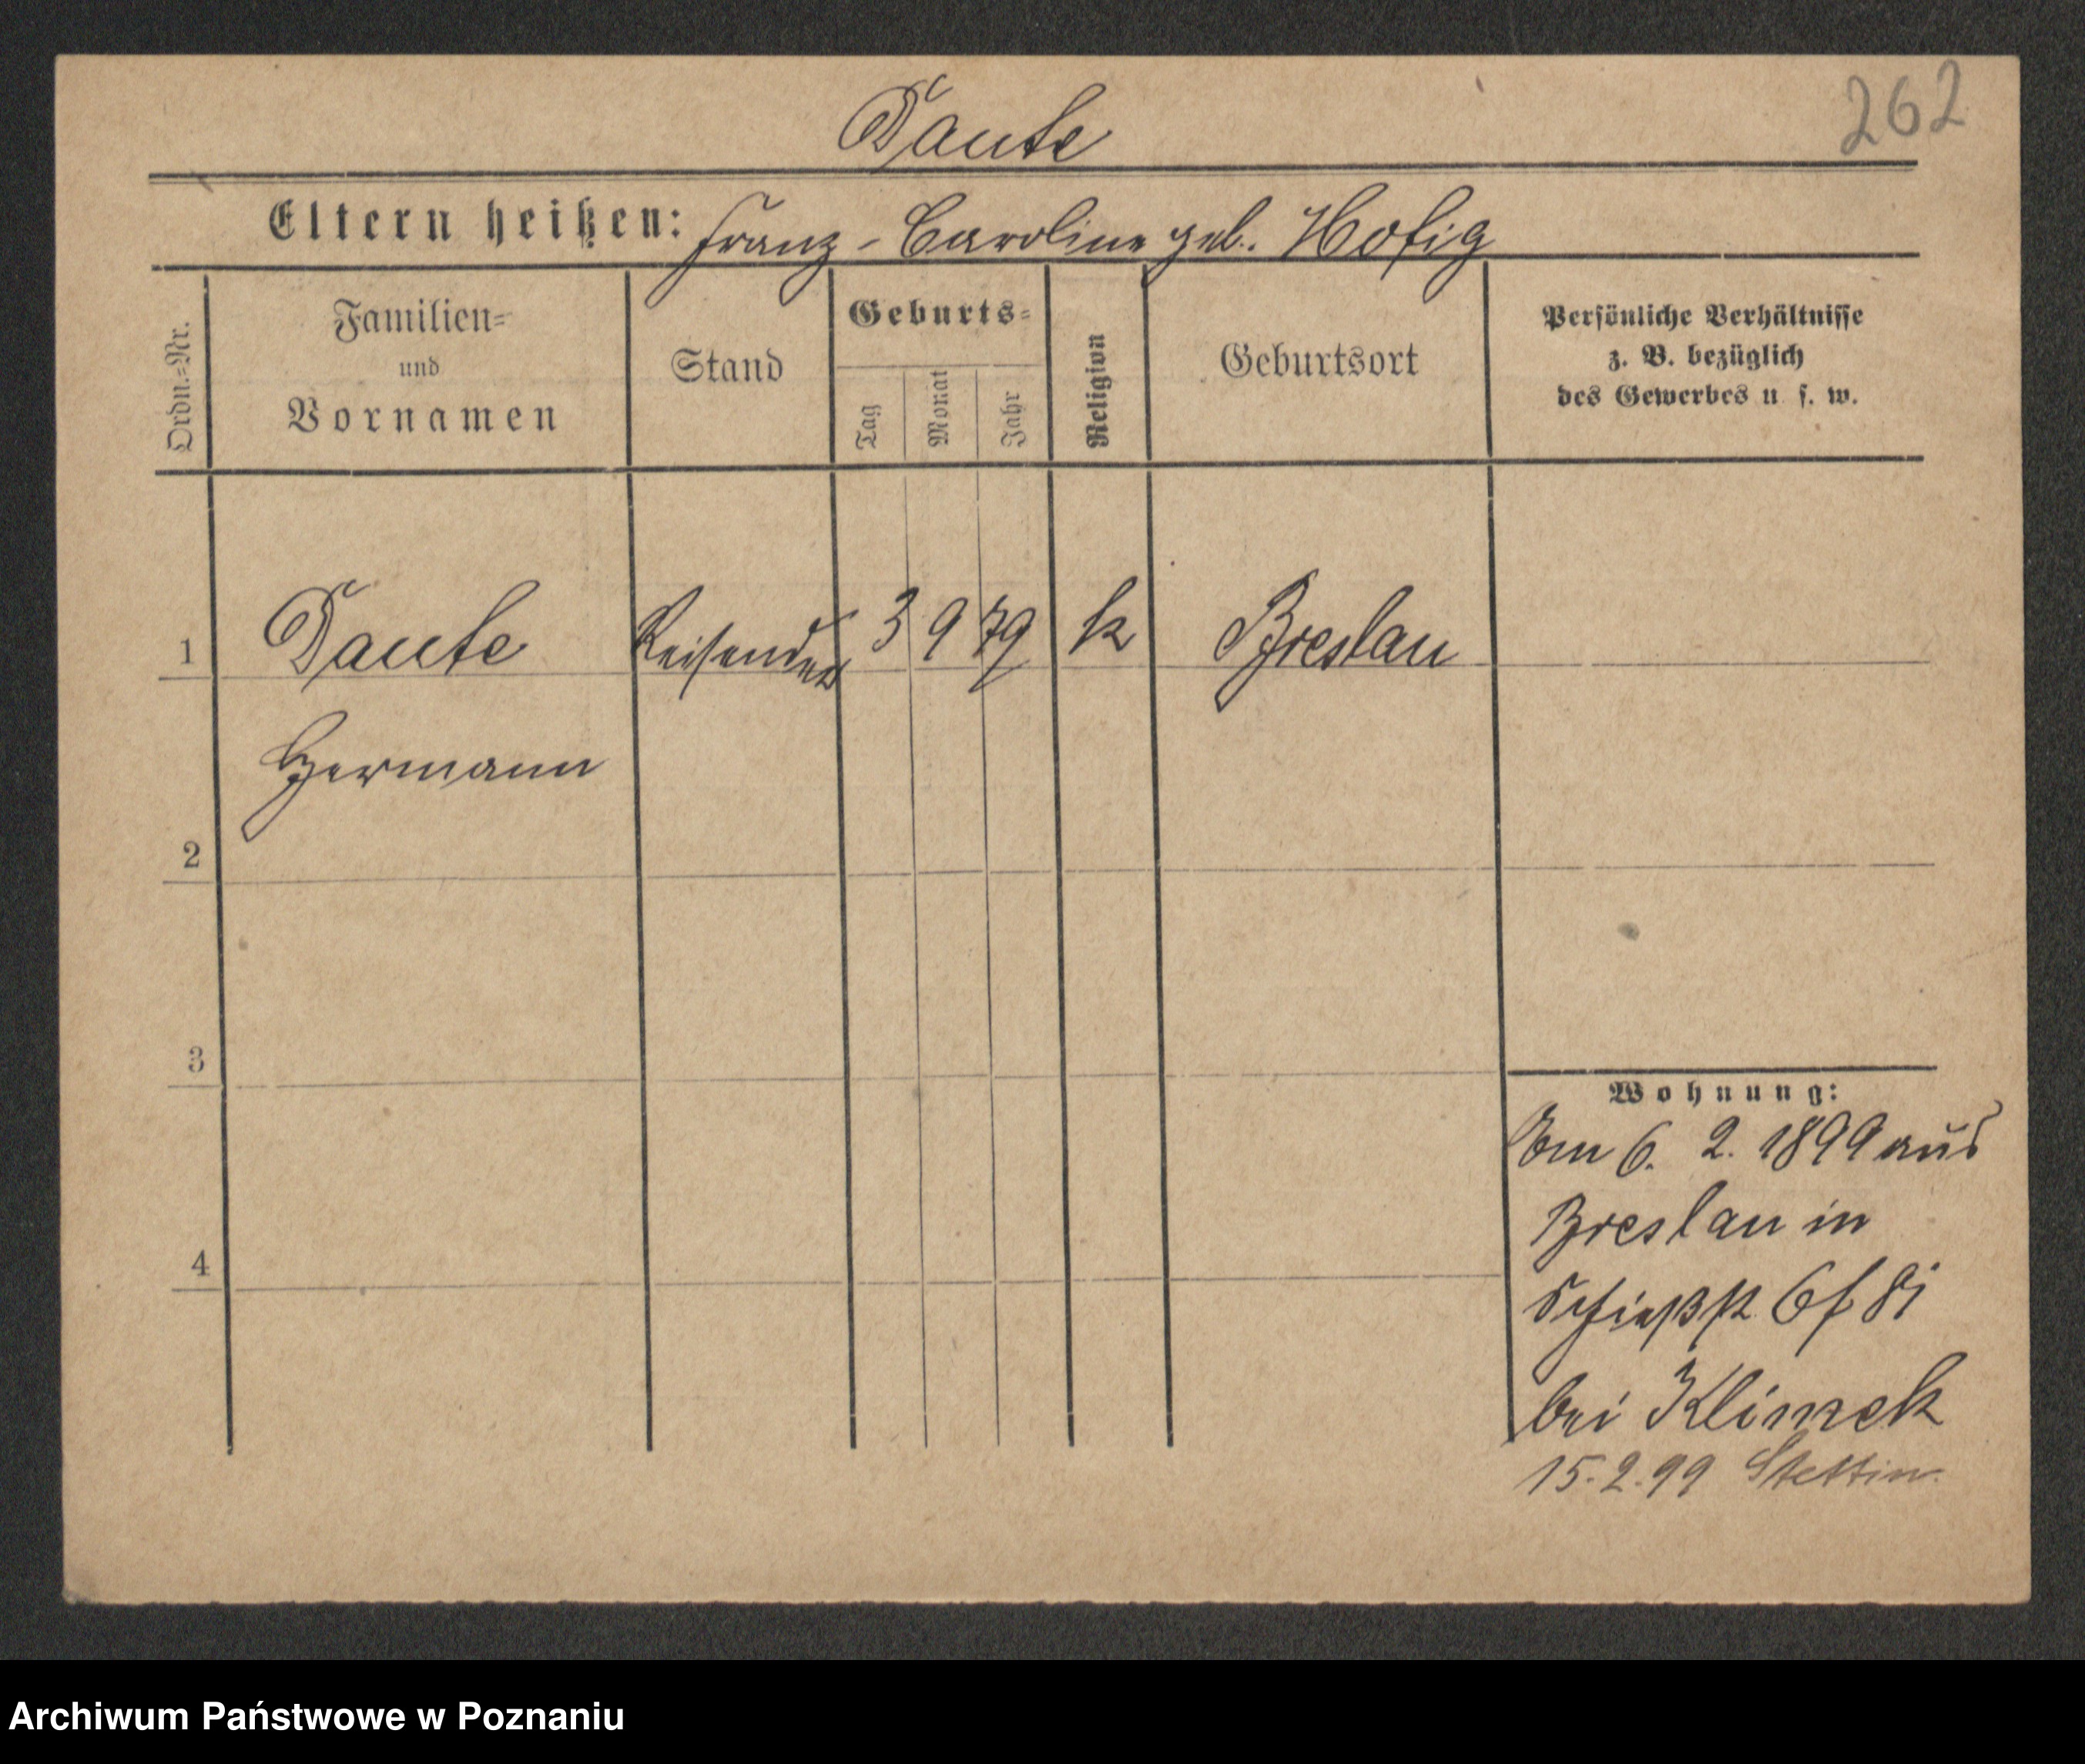 262
Daute
Eltern heißen: Franz - Caroline geb. Hofig
Ordn.=Nr.
Familien=
und
Vornamen
Stand
Geburts=
Tag
Monat
Jahr
Religion
Geburtsort
Persönliche Verhältnisse
z. B. bezüglich
des Gewerbes u. s. w.
1 Daute Reisender 3 9 79 k Breslau
Hermann
2
3
4
Wohnung:
Am 6. 2. 1899 aus
Breslau in
Schießst 6
bei Klimek
15.2.99 Stettin.
Archiwum Państwowe w Poznaniu